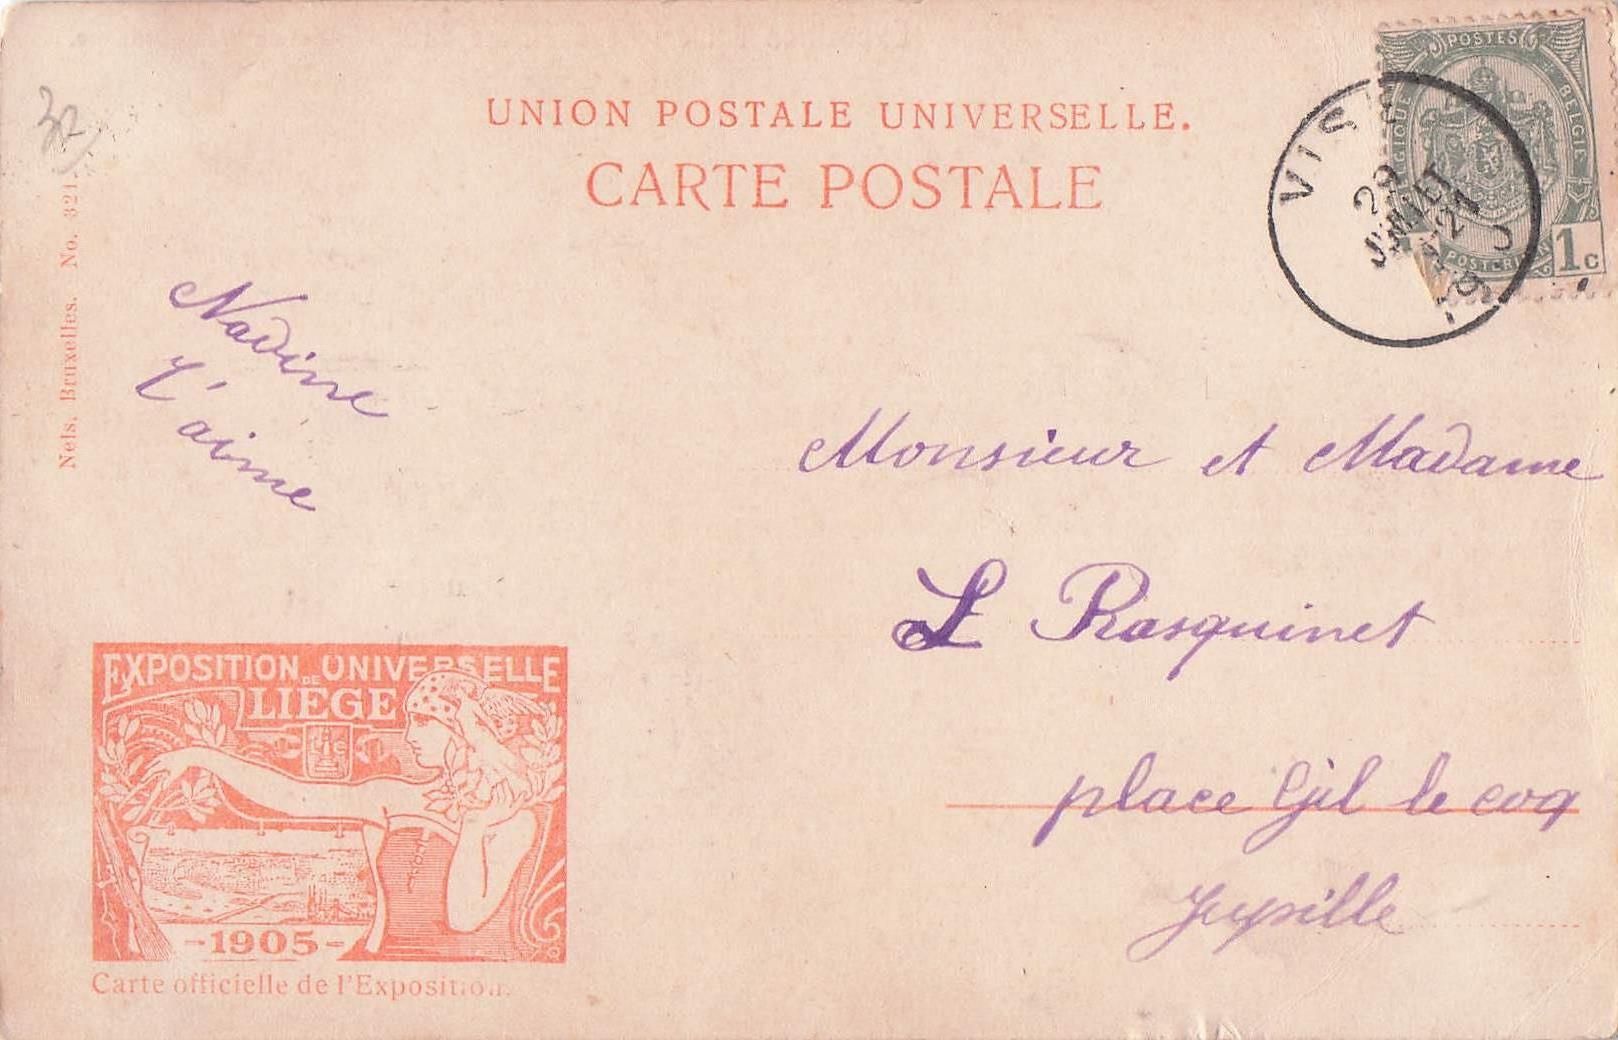 UNION POSTALE UNIVERSELLE.
CARTE POSTALE
32
Nels, Bruxelles. No. 321.
POSTES
BELGIË
1c
VISÉ
29
JUILLET
Nadine
J'aime
Monsieur et Madame
L Rasquinet
place Gil le coq
Jupille
EXPOSITION DE UNIVERSELLE
LIEGE
-1905-
Carte officielle de l'Exposition.